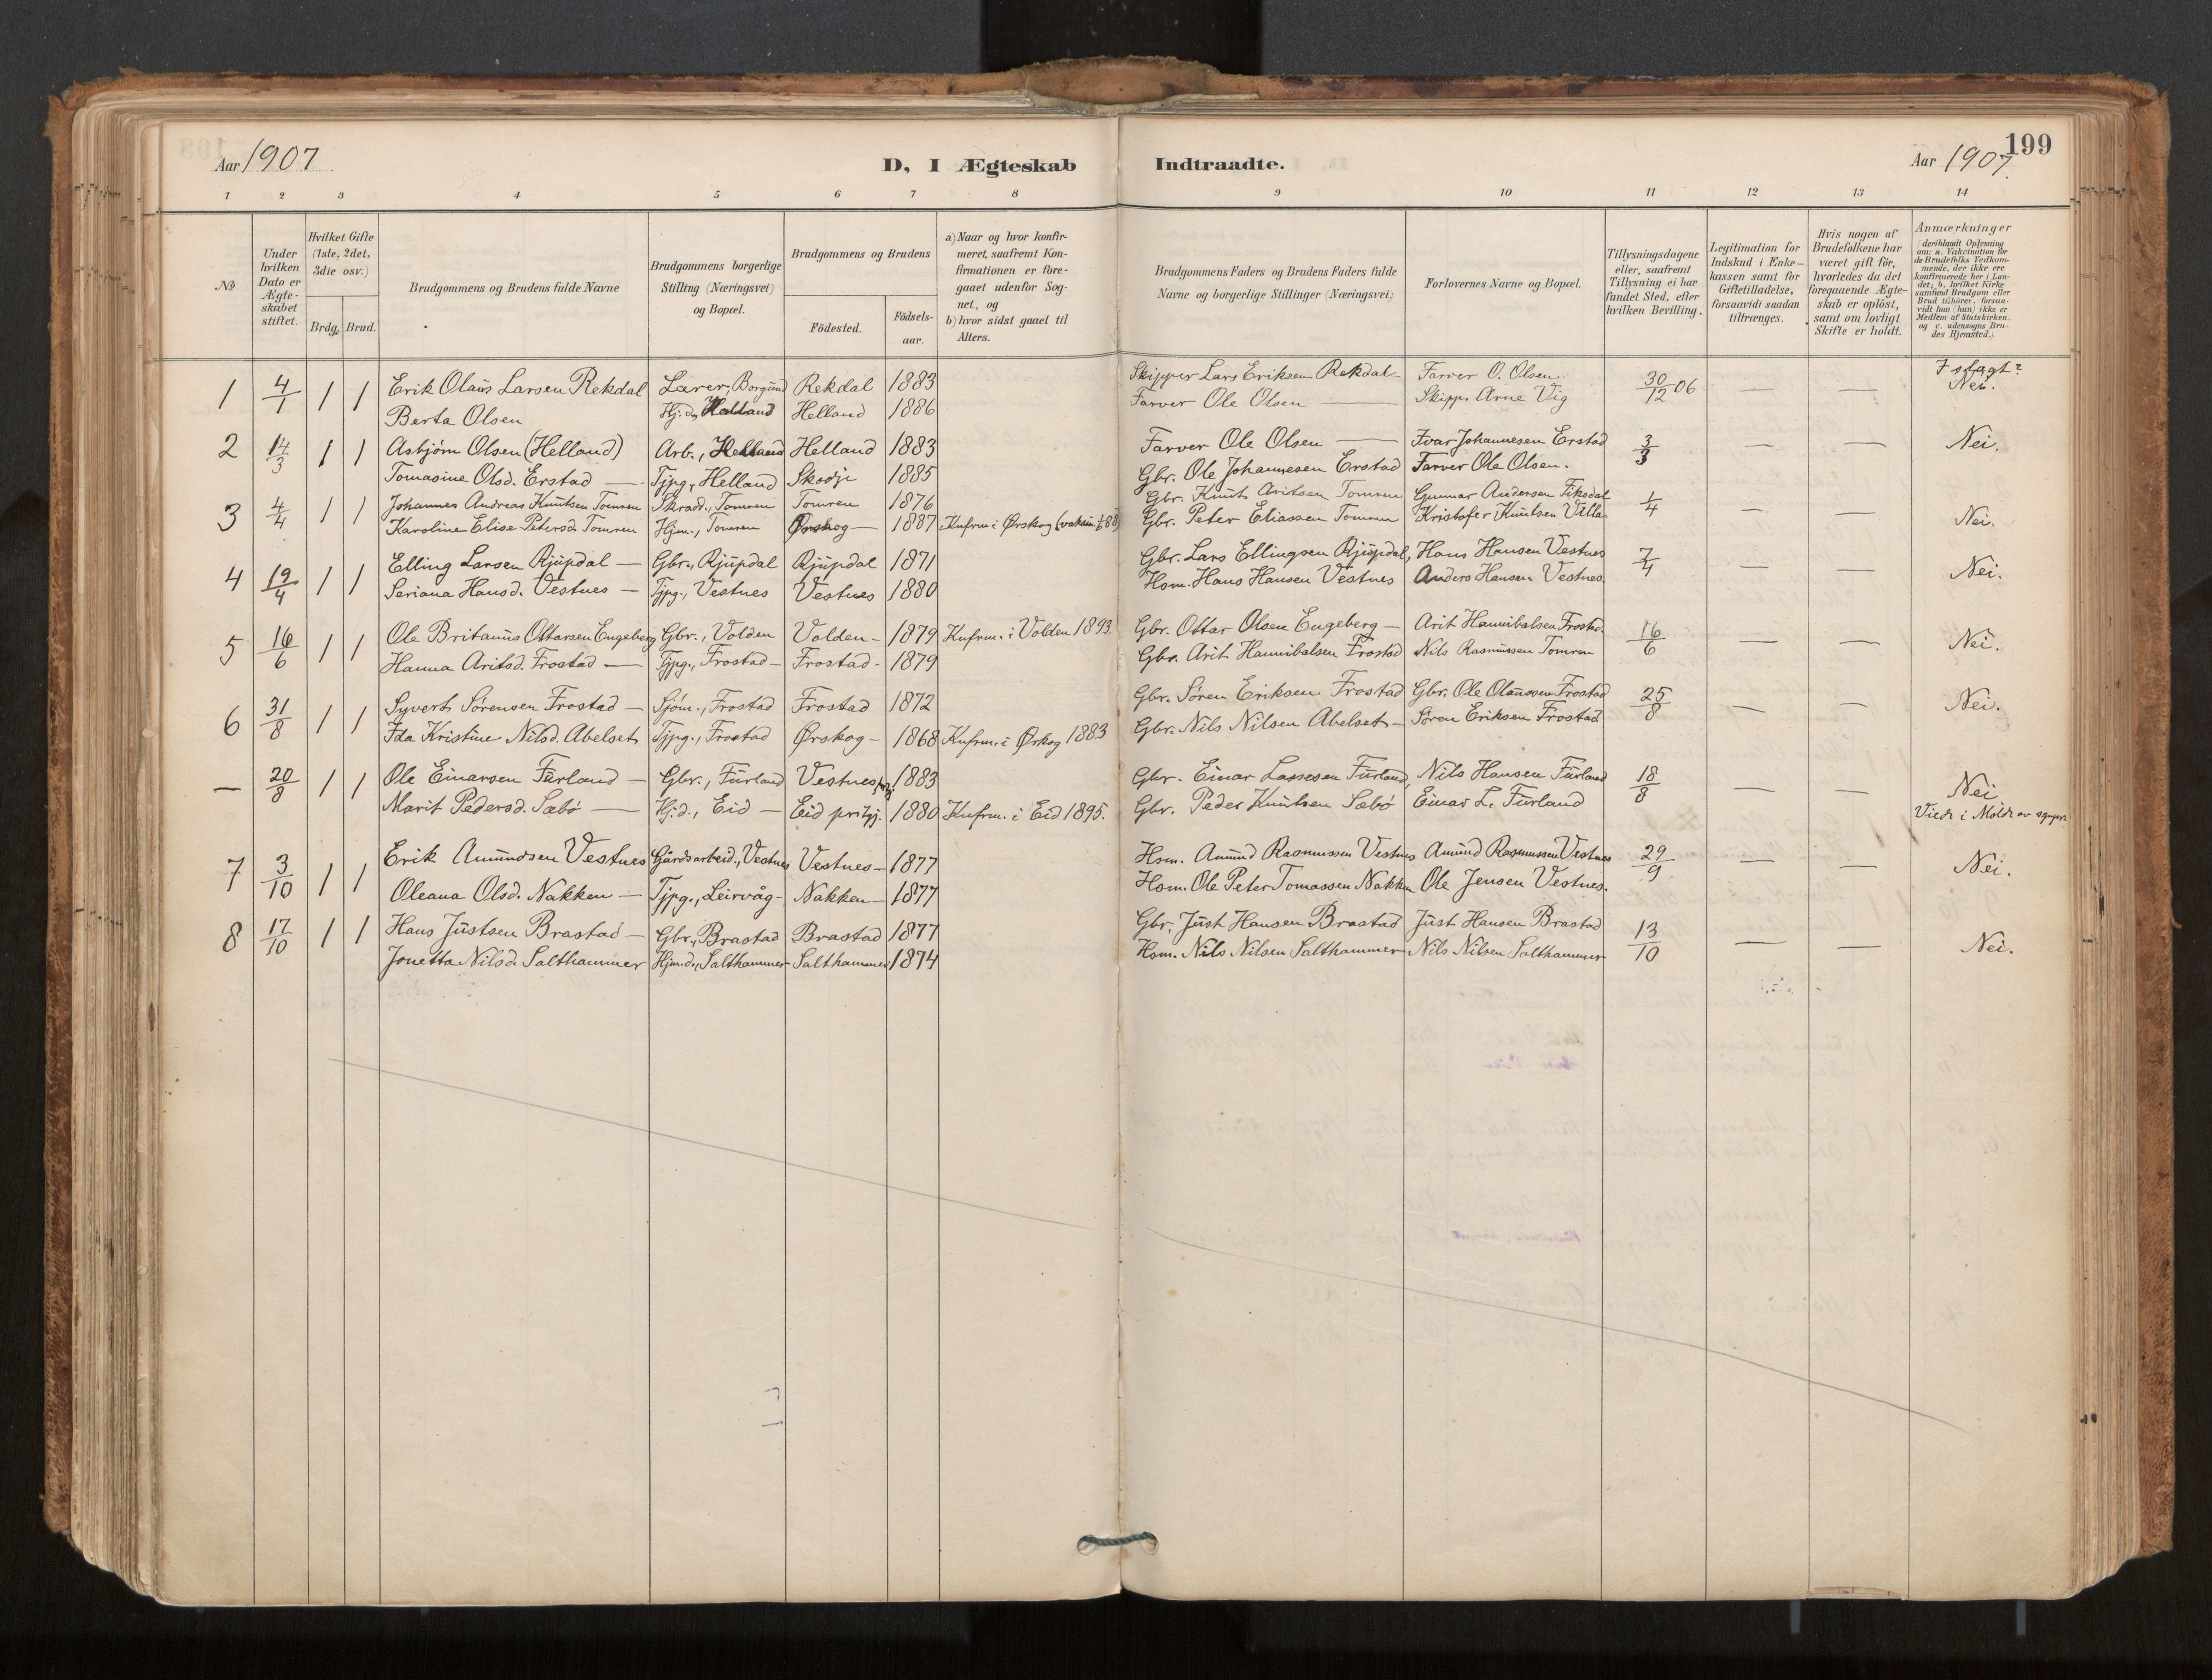 Aar 1907
D, I Ægteskab
Indtraadte.
Aar 1907.
199
1 2 3 4 5 6 7 8 9 10 11 12 13 14
No
Under hvilken Dato er Ægteskabet stiftet.
Hvilket Gifte (1ste, 2det, 3die osv.)
Brdg. Brud.
Brudgommens og Brudens fulde Navne
Brudgommens borgerlige Stilling (Næringsvei) og Bopæl.
Brudgommens og Brudens
Födested.
Födsels-aar.
a) Naar og hvor konfirmeret, saafremt Konfirmationen er foregaaet udenfor Sognet, og
b) hvor sidst gaaet til Alters.
Brudgommens Faders og Brudens Faders fulde Navne og borgerlige Stillinger (Næringsvei)
Forlovernes Navne og Bopæl.
Tillysningsdagene eller, saafremt Tillysning ei har fundet Sted, efter hvilken Bevilling.
Legitimation for Indskud i Enkekassen samt for Giftetilladelse, forsaavidt saadan tiltrænges.
Hvis nogen af Brudefolkene har været gift för, hvorledes da det foregaaende Ægteskab er oplöst, samt om lovligt Skifte er holdt.
Anmærkninger
(deriblandt Oplysning om: a. Vakcination för de Brudefolks Vedkommende, der ikke ere konfirmerede her i Landet; b. hvilket Kirkesamfund Brudgom eller Brud tilhörer, forsaavidt han (hun) ikke er Medlem af Statskirken, og c. udensogns Brudes Hjemsted.)
1 4/1 1 1 Erik Olaus Larsen Rekdal Lærer, Borgund Rekdal 1883 Skipper Lars Eriksen Rekdal Farver O. Olsen 30/12 06 — — Nei.
Berta Olsen Hj.d., Helland Helland 1886 Farver Ole Olsen — Skipp. Arne Vig
2 14/3 1 1 Asbjørn Olsen (Helland) Arb., Helland Helland 1883 Farver Ole Olsen — Ivar Johannesen Erstad 3/3 — — Nei.
Tomasine Olsd. Erstad — Tjpg., Helland Skodje 1885 Gbr. Ole Johannesen Erstad Farver Ole Olsen.
3 4/4 1 1 Johannes Andreas Knutsen Tomren Skradd., Tomren Tomren 1876 Gbr. Knut Aritsen Tomren Gunnar Andersen Fiksdal 1/4 — — Nei.
Karoline Elise Petersd. Tomren Hjm., Tomren Ørskog — 1887 Knfrm. i Ørskog Gbr. Peter Eliassen Tomren Kristofer Knutsen Villa
4 19/4 1 1 Elling Larsen Rjupdal — Gbr., Rjupdal Rjupdal 1871 Gbr. Lars Ellingsen Rjupdal, Hans Hansen Vestnes 7/4 — — Nei.
Seriana Hansd. Vestnes — Tjpg., Vestnes Vestnes 1880 Hsm. Hans Hansen Vestnes Anders Hansen Vestnes.
5 16/6 1 1 Ole Britanus Ottarsen Engeberg Gbr., Volden Volden — 1879 Knfrm. i Volden 1893. Gbr. Ottar Olsen Engeberg — Arit Hannibalsen Frostad. 16/6 — — Nei.
Hanna Aritsd. Frostad — Tjpg., Frostad — Frostad — 1879 Gbr. Arit Hannibalsen Frostad Nils Rasmussen Tomren
6 31/8 1 1 Syvert Sørensen Frostad — Sjøm., Frostad Frostad 1872 Gbr. Søren Eriksen Frostad Gbr. Ole Olaussen Frostad 25/8 — — Nei.
Ida Kristine Nilsd. Abelset Tjpg., Frostad Ørskog — 1868 Knfrm. i Ørskog 1883 Gbr. Nils Nilsen Abelset — Søren Eriksen Frostad
— 20/8 1 1 Ole Einarsen Furland — Gbr., Furland Vestnes 1883 Gbr. Einar Lassesen Furland, Nils Hansen Furland 18/8 — — Nei
Marit Pedersd. Sæbø — Hj.d., Eid — Eid prstgj. 1880 Knfrm. i Eid 1895. Gbr. Peder Knutsen Sæbø Einar L. Furland Viede i Molde
7 3/10 1 1 Erik Amundsen Vestnes Gårdsarbeid., Vestnes Vestnes — 1877 Hsm. Amund Rasmussen Vestnes Amund Rasmussen Vestnes 29/9 — — Nei.
Oleana Olsd. Nakken — Tjpg., Leirvåg — Nakken — 1877 Hsm. Ole Peter Tomassen Nakken Ole Jensen Vestnes.
8 17/10 1 1 Hans Justsen Brastad — Gbr., Brastad Brastad 1877 Gbr. Just Hansen Brastad Just Hansen Brastad 13/10 — — Nei.
Jonetta Nilsd. Salthammer Hjm.d., Salthammer Salthammer 1874 Hsm. Nils Nilsen Salthammer Nils Nilsen Salthammer